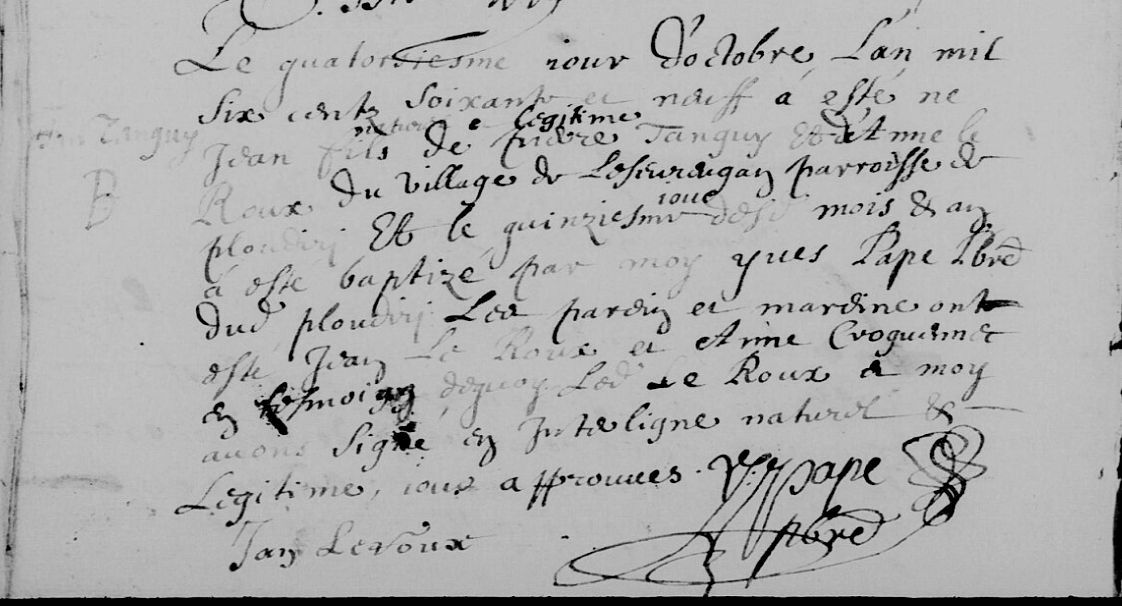 Le quatorsiesme iour d'octobre L'an mil
six centz soixante et neuff a esté ne
naturel e Legitime
Jean fils de pierre Tanguy Et d'Anne le
Tanguy
Roux du village de parroisse de
B
iour
ploudiri Et le quinziesme desd mois & an
a esté baptizé par moy yues Pape Pbre
dud ploudiri Les parein et mareine ont
esté Jean Le Roux et Anne Croguennec
en tesmoign dequoy Led Le Roux et moy
auons signé en Interligne naturel &
Legitime, iour approuuees. Y. pape
pbre
Jan Leroux